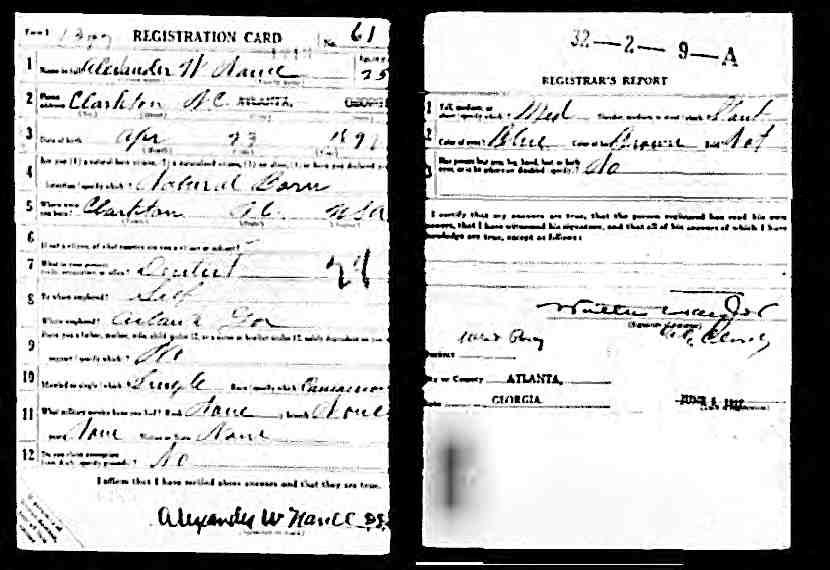 Form 1 REGISTRATION CARD No. 61
1 Name in full Alexander W Nance 25
2 Home address Clarkton N.C. ATLANTA, GEORGIA
3 Date of birth Apr 23
4 Are you (1) a natural born citizen, (2) a naturalized citizen, (3) an alien, (4) or have you declared your
intention (specify which)? Natural Born
5 Where were you born? Clarkton N.C. USA
6 If not a citizen, of what country are you a citizen or subject?
7 What is your present trade, occupation, or office? Dentist
8 By whom employed? Self
Where employed? Atlanta
9 Have you a father, mother, wife, child under 12, or a sister or brother under 12, solely dependent on you
support (specify which)? No
10 Married or single (which)? Single Race (specify which)? Caucasian
11 What military service have you had? Rank None ; branch None
years None Nation or State None
12 Do you claim exemption from draft (specify grounds)? No
I affirm that I have verified above answers and that they are true.
Alexander W Nance
32—2—9—A
REGISTRAR'S REPORT
1 Tall, medium, or short (specify which)? Med Slender, medium, or stout (which)?
2 Color of eyes? Blue Color of hair? Brown Bald? Not
3 Has person lost arm, leg, hand, foot, or both eyes, or is he otherwise disabled (specify)? No
I certify that my answers are true, that the person registered has read his own
answers, that I have witnessed his signature, and that all of his answers of which I have
knowledge are true, except as follows:
(Signature of registrar)
Precinct
City or County ATLANTA,
State GEORGIA JUNE 5, 1917
(Date of registration)